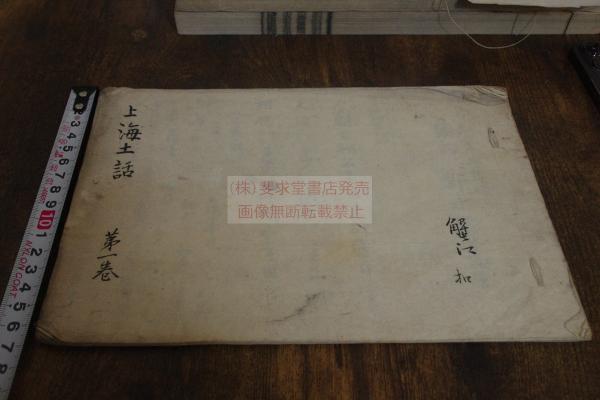 上海土話
第一巻
蟹江 扣
(株)斐求堂書店発売
画像無断転載禁止
2 3 4 5 6 7 8 9 10 1 2 3 4 5 6 7
NYLON COAT